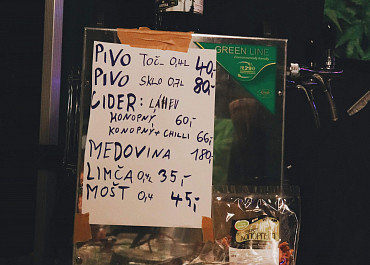 PIVO TOČ. 0,4L 40,-
PIVO SKLO 0,7L 80,-
CIDER: LÁHEV
KONOPNÝ 60,-
KONOPNÝ + CHILLI 66,-
MEDOVINA 180,-
LIMČA 0,4L 35,-
MOŠT 0,4 45,-
GREEN LINE